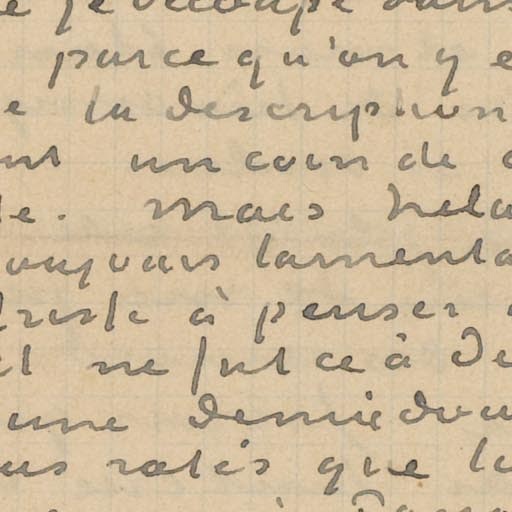 e je découpe dans
parce qu'on y e
e la description
ant un coin de
le. Mais hela
oujours lamenta
triste à penser
et ne fut ce à De
une demie dou
us ratés que la